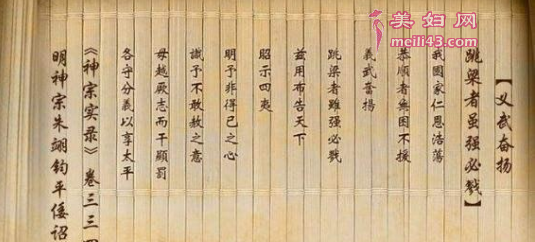 【义武奋扬
跳梁者虽强必戮】
我國家仁恩浩荡
恭順者無困不援
義武奮揚
跳梁者雖强必戮
兹用布告天下
昭示四夷
明予非得已之心
識予不敢赦之意
毋越厥志而干顯罰
各守分義以享太平
《神宗实录》卷三三四
明神宗朱翊钧平倭诏
美妇网
meili43.com